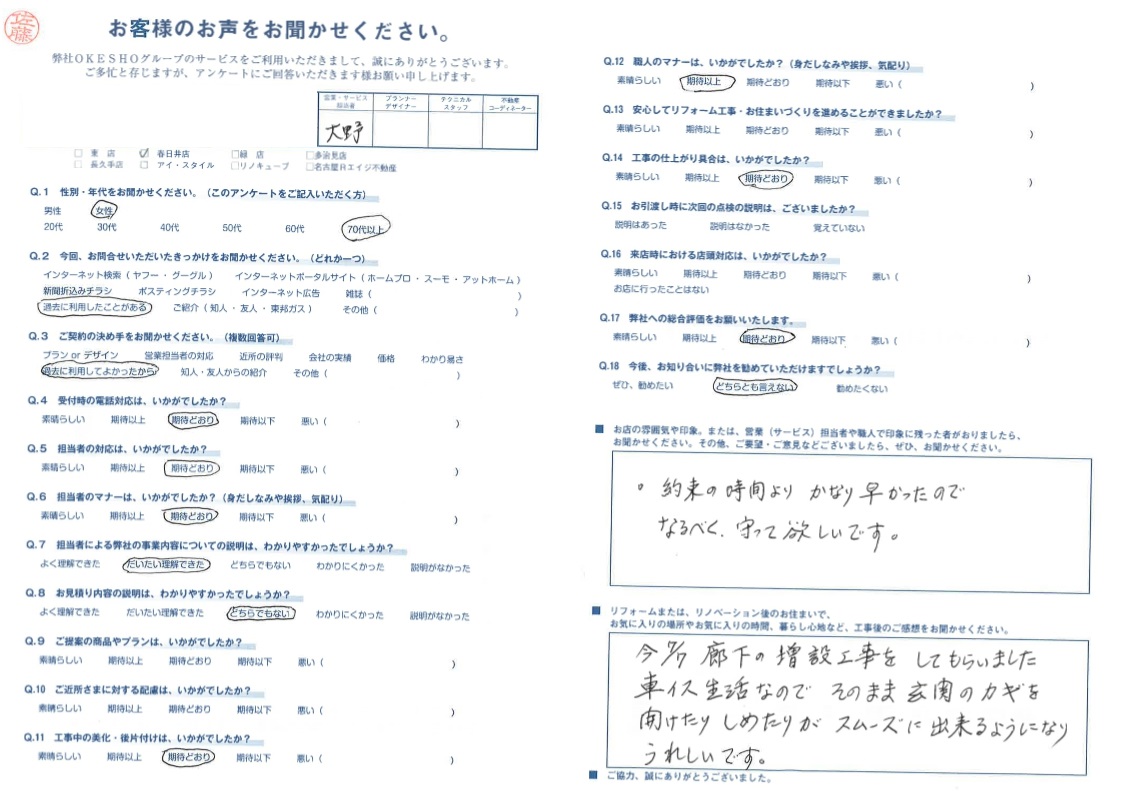 佐藤
お客様のお声をお聞かせください。
弊社OKESHOグループのサービスをご利用いただきまして、誠にありがとうございます。
ご多忙と存じますが、アンケートにご回答いただきます様お願い申し上げます。
営業・サービス担当者 プランナーデザイナー テクニカルスタッフ 不動産コーディネーター
大野
□ 東 店 ☑ 春日井店 □ 緑 店 □ 多治見店
□ 長久手店 □ アイ・スタイル □ リノキューブ □ 名古屋Rエイジ不動産
Q.1 性別・年代をお聞かせください。（このアンケートをご記入いただく方）
男性 女性
20代 30代 40代 50代 60代 70代以上
Q.2 今回、お問合せいただいたきっかけをお聞かせください。（どれか一つ）
インターネット検索（ヤフー・グーグル） インターネットポータルサイト（ホームプロ・スーモ・アットホーム）
新聞折込みチラシ ポスティングチラシ インターネット広告 雑誌（ ）
過去に利用したことがある ご紹介（知人・友人・東邦ガス） その他（ ）
Q.3 ご契約の決め手をお聞かせください。（複数回答可）
プラン or デザイン 営業担当者の対応 近所の評判 会社の実績 価格 わかり易さ
過去に利用してよかったから 知人・友人からの紹介 その他（ ）
Q.4 受付時の電話対応は、いかがでしたか？
素晴らしい 期待以上 期待どおり 期待以下 悪い（ ）
Q.5 担当者の対応は、いかがでしたか？
素晴らしい 期待以上 期待どおり 期待以下 悪い（ ）
Q.6 担当者のマナーは、いかがでしたか？（身だしなみや挨拶、気配り）
素晴らしい 期待以上 期待どおり 期待以下 悪い（ ）
Q.7 担当者による弊社の事業内容についての説明は、わかりやすかったでしょうか？
よく理解できた だいたい理解できた どちらでもない わかりにくかった 説明がなかった
Q.8 お見積り内容の説明は、わかりやすかったでしょうか？
よく理解できた だいたい理解できた どちらでもない わかりにくかった 説明がなかった
Q.9 ご提案の商品やプランは、いかがでしたか？
素晴らしい 期待以上 期待どおり 期待以下 悪い（ ）
Q.10 ご近所さまに対する配慮は、いかがでしたか？
素晴らしい 期待以上 期待どおり 期待以下 悪い（ ）
Q.11 工事中の美化・後片付けは、いかがでしたか？
素晴らしい 期待以上 期待どおり 期待以下 悪い（ ）
Q.12 職人のマナーは、いかがでしたか？（身だしなみや挨拶、気配り）
素晴らしい 期待以上 期待どおり 期待以下 悪い（ ）
Q.13 安心してリフォーム工事・お住まいづくりを進めることができましたか？
素晴らしい 期待以上 期待どおり 期待以下 悪い（ ）
Q.14 工事の仕上がり具合は、いかがでしたか？
素晴らしい 期待以上 期待どおり 期待以下 悪い（ ）
Q.15 お引渡し時に次回の点検の説明は、ございましたか？
説明はあった 説明はなかった 覚えていない
Q.16 来店時における店頭対応は、いかがでしたか？
素晴らしい 期待以上 期待どおり 期待以下 悪い（ ）
お店に行ったことはない
Q.17 弊社への総合評価をお願いいたします。
素晴らしい 期待以上 期待どおり 期待以下 悪い（ ）
Q.18 今後、お知り合いに弊社を勧めていただけますでしょうか？
ぜひ、勧めたい どちらとも言えない 勧めたくない
■ お店の雰囲気や印象。または、営業（サービス）担当者や職人で印象に残った者がおりましたら、
お聞かせください。その他、ご要望・ご意見などございましたら、ぜひ、お聞かせください。
。約束の時間より かなり早かったので
なるべく、守って欲しいです。
■ リフォームまたは、リノベーション後のお住まいで、
お気に入りの場所やお気に入りの時間、暮らし心地など、工事後のご感想をお聞かせください。
廊下の増設工事を してもらいました
車イス生活なので そのまま玄関のカギを
開けたり しめたりが スムーズに出来るようになり
うれしいです。
■ ご協力、誠にありがとうございました。